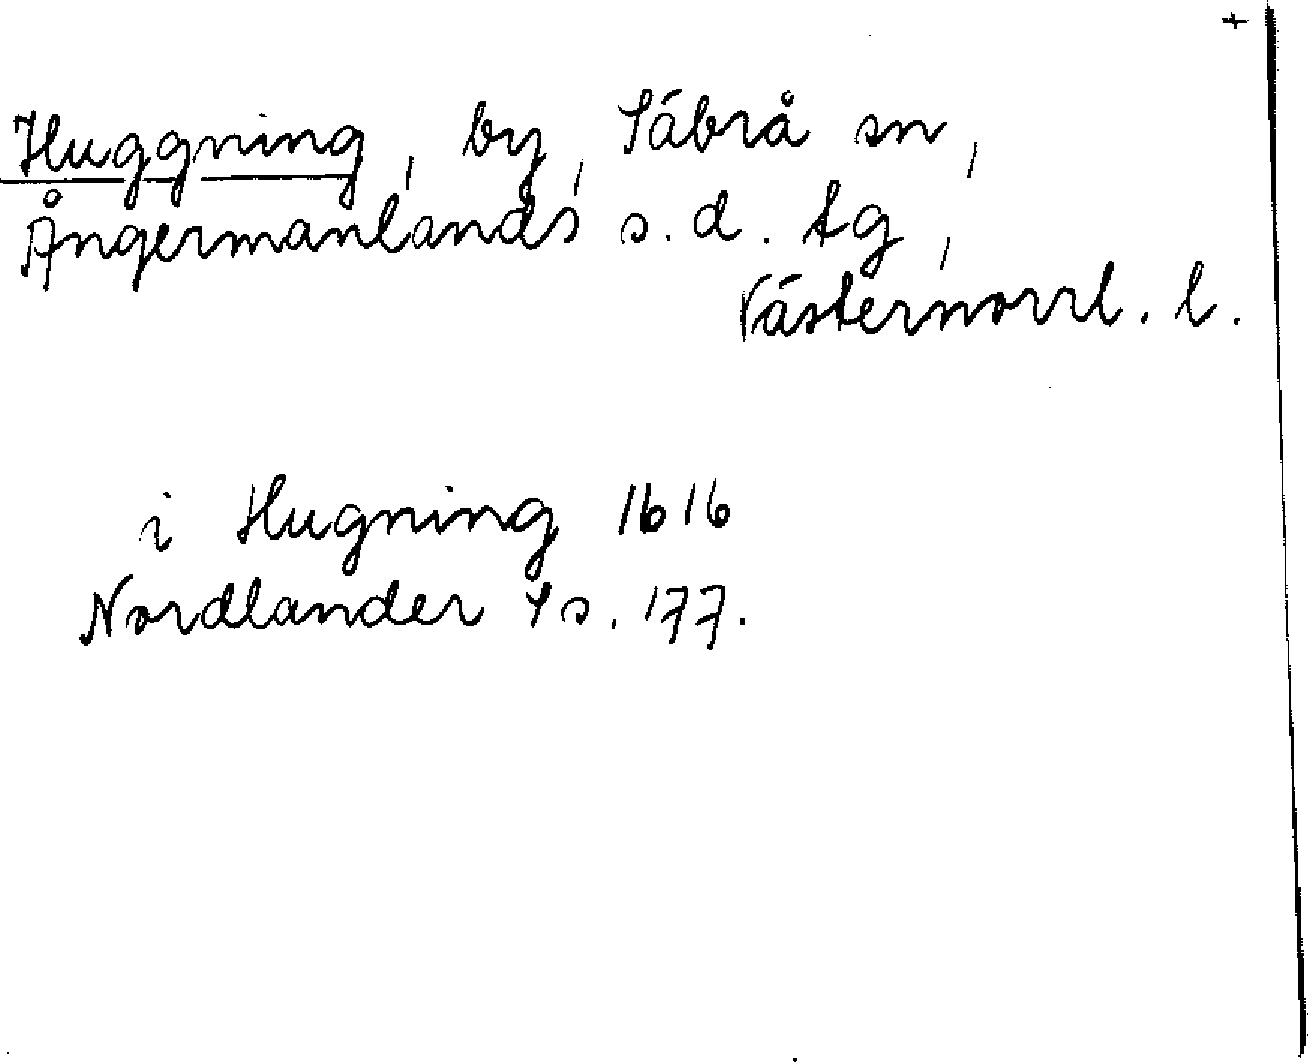 +
Huggning, by, Säbrå sn,
Ångermanlands s. d. tg,
Västernorrl. l.
i Hugning 1616
Nordlander 1 s. 177.